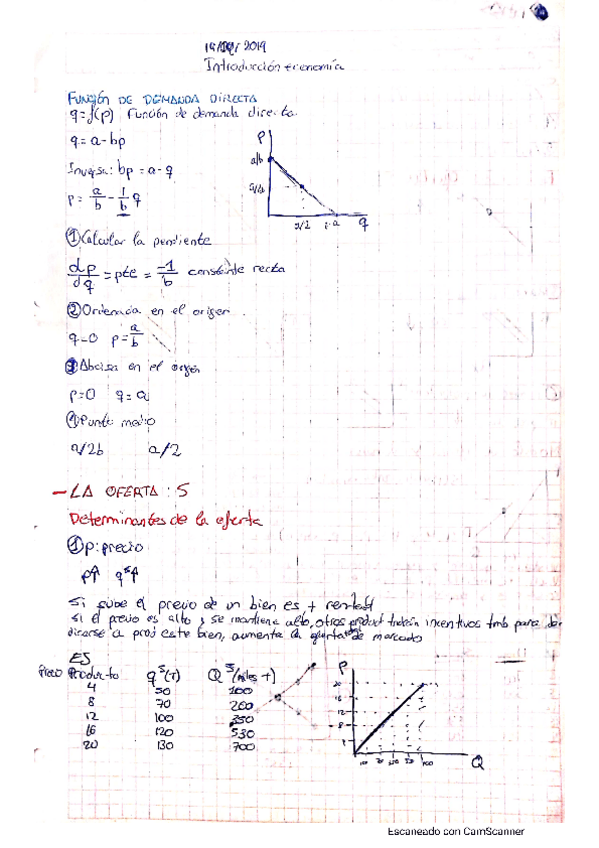 2019
Introducción economía
FUNCIÓN DE DEMANDA DIRECTA
q=f(p) Función de demanda directa.
q= a-bp
Inversa: bp = a-q
p= a/b - 1/b q
P
a/b
a/2b
a/2
a
q
① Calcular la pendiente
dp/dq = pte = -1/b constante recta
② Ordenada en el origen
q=0 p= a/b
③ Abcisa en el origen
p=0 q=a
④ Punto medio
a/2b a/2
- LA OFERTA: S
Determinantes de la oferta
① p: precio
p↑ q^s↑
Si sube el precio de un bien es + rentabl
si el precio es alto y se mantiene alto, otros product tndrán incentivos tmb para de
dicarse a prod este bien, aumenta la oferta de mercado
ES
Precio Producto q^s(T) Q^s(miles T)
4 50 100
8 70 200
12 100 350
16 120 530
20 130 700
P
20
16
12
8
Q
Escaneado con CamScanner